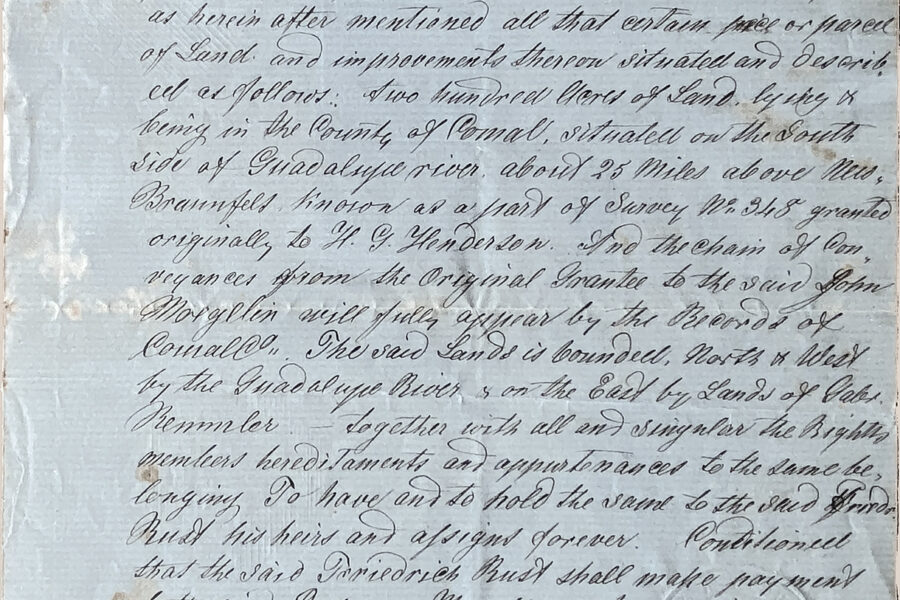 as herein after mentioned all that certain piece or parcel
of Land and improvements thereon situated and describ,
ed as follows: two hundred Acres of Land, lying &
being in the County of Comal, situated on the South
side of Guadalupe river, about 25 Miles above Neu,
Braunfels, known as a part of Survey No. 348 granted
originally to H. G. Henderson. And the chain of Con,
veyances from the Original Grantee to the said John
Moegllin will fully appear by the Records of
Comal Co,, The said Lands is bounded, North & West
by the Guadalupe River, & on the East by Lands of Gabr.
Remmler — together with all and singular the Rights,
members hereditaments and appurtenances to the same be,
longing To have and to hold the same to the said Friedr.
Rust his heirs and assigns forever. Conditioned
that the said Friedrich Rust shall make payment